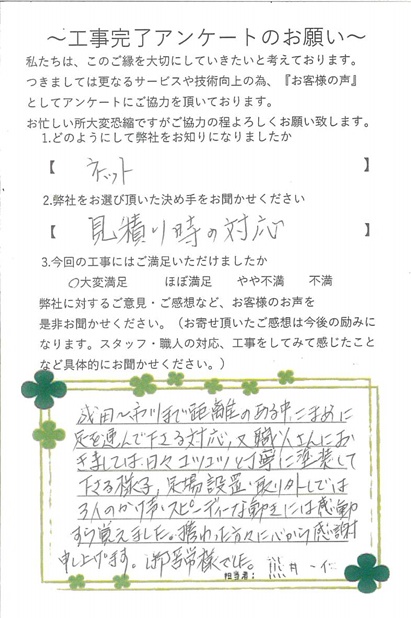 ～工事完了アンケートのお願い～
私たちは、このご縁を大切にしていきたいと考えております。
つきましては更なるサービスや技術向上の為、『お客様の声』
としてアンケートにご協力を頂いております。
お忙しい所大変恐縮ですがご協力の程よろしくお願い致します。
1.どのようにして弊社をお知りになりましたか
【 ネット 】
2.弊社をお選び頂いた決め手をお聞かせください
【 見積り時の対応 】
3.今回の工事にはご満足いただけましたか
○大変満足 ほぼ満足 やや不満 不満
弊社に対するご意見・ご感想など、お客様のお声を
是非お聞かせください。（お寄せ頂いたご感想は今後の励みに
なります。スタッフ・職人の対応、工事をしてみて感じたこと
など具体的にお聞かせください。）
成田〜市川まで距離のある中こまめに
足を運んで下さる対応、又職人さんにお
きましては、日々コツコツと丁寧に塗装して
下さる様子、足場設置・取り外しでは
3人のかけ声・スピーディーな動きには感動
すら覚えました。携わった方々に心から感謝
申し上げます。御苦労様でした。
担当者：